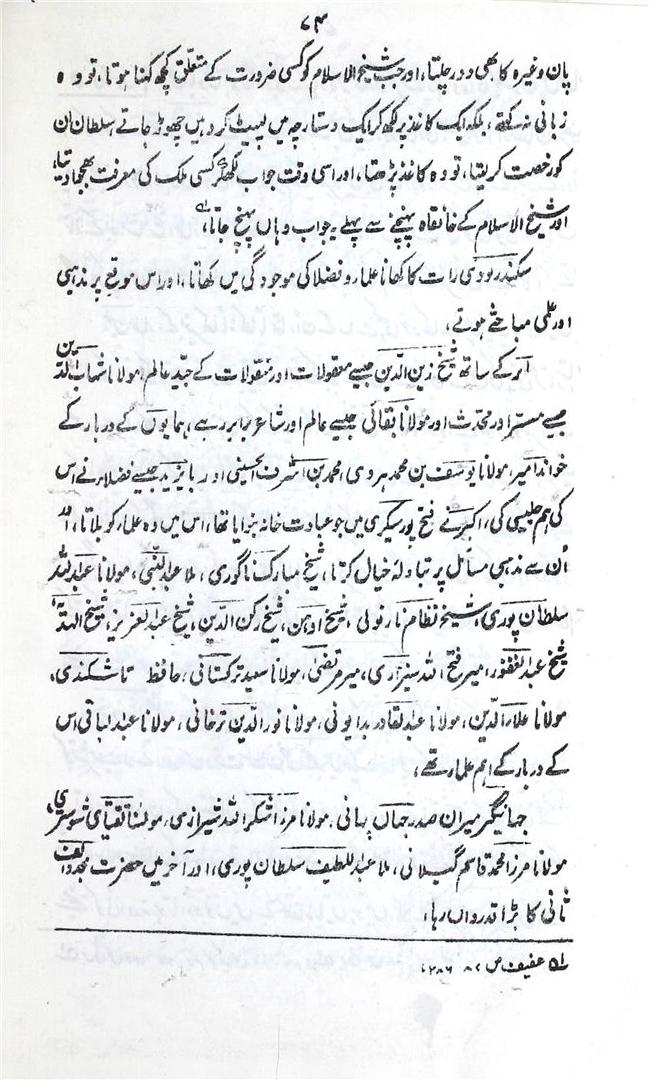 ۷۴
پان وغیرہ کا بھی دور چلتا، اور جب شیخ الاسلام کو کسی ضرورت کے متعلق کچھ کہنا ہوتا، تو وہ
زبانی نہ کہتے، بلکہ ایک کاغذ پر لکھ کر ایک دستارچہ میں لپیٹ کر وہیں چھوڑ جاتے سلطان ان
کو رخصت کر لیتا، تو وہ کاغذ پڑھتا، اور اسی وقت جواب لکھکر کسی ملک کی معرفت بھجوا دیتا،
اور شیخ الاسلام کے خانقاہ پہنچنے سے پہلے یہ جواب وہاں پہنچ جاتا،
سکندر لودی رات کا کھانا علماء و فضلا کی موجودگی میں کھاتا، اور اس موقع پر مذہبی
اور علمی مباحثے ہوتے،
بابر کے ساتھ شیخ زین الدین جیسے معقولات اور منقولات کے جید عالم، مولانا شہاب الدین
جیسے مفسر اور محدث اور مولانا بقائی جیسے عالم اور شاعر برابر رہے، ہمایوں کے دربار کے
خواند امیر، مولانا یوسف بن محمد ہروی، محمد بن اشرف الحسینی اور بایزید جیسے فضلاء نے اس
کی ہم جلیسی کی، اکبر نے فتح پور سیکری میں جو عبادت خانہ بنوایا تھا، اس میں وہ علماء کو بلاتا، اور
اُن سے مذہبی مسائل پر تبادلۂ خیال کرتا، شیخ مبارک ناگوری، ملا عبد النبی، مولانا عبد اللہ
سلطان پوری، شیخ نظام نارنولی، شیخ ادہن، شیخ رکن الدین، شیخ عبد العزیز، شیخ الہدیہ،
شیخ عبد الغفور، میر فتح اللہ شیرازی، میر مرتضیٰ، مولانا سعید ترکستانی، حافظ تاشکندی،
مولانا علاء الدین، مولانا عبد القادر بدایونی، مولانا نور الدین ترخانی، مولانا عبد الباقی اس
کے دربار کے اہم علماء تھے،
جہانگیر میران صدر جہاں پہانی، مولانا مرزا شکر اللہ شیرازی، مولٰنا تقیای شوستری،
مولانا مرزا محمد قاسم گیلانی، ملا عبد اللطیف سلطان پوری، اور آخر میں حضرت مجدد الف
ثانی کا بڑا قدر واں رہا،
لہ عفیف ص ۸۰، ۲۸۶،